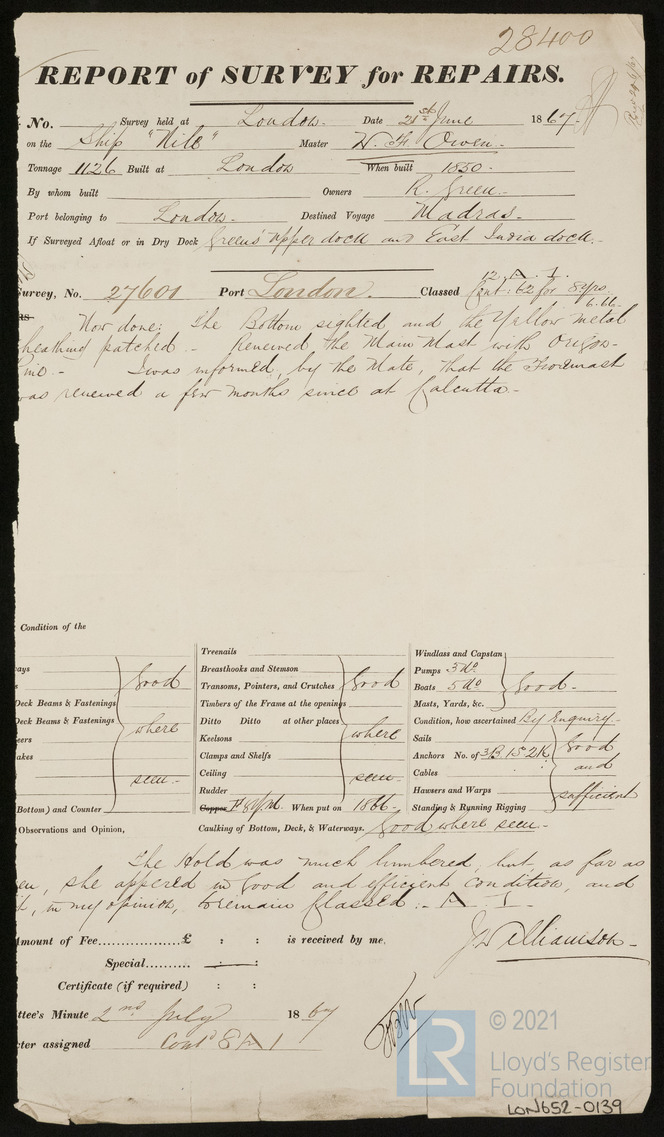 28400
REPORT of SURVEY for REPAIRS.
No. Survey held at London. Date 21st June 1867.
on the Ship "Nile" Master W. H. Owen.
Tonnage 1126 Built at London When built 1850.
By whom built Owners R. Green.
Port belonging to London. Destined Voyage Madras.
If Surveyed Afloat or in Dry Dock Greens' Upper dock and East India dock.
12. A. 1.
Survey, No. 27601 Port London. Classed Cont. 62 for 8 yrs.
6.66.
Now done: The Bottom sighted and the Yellow Metal
heathing patched. - Renewed the Main Mast with Oregon
ine. - I was informed, by the Mate, that the Foremast
was renewed a few months since at Calcutta.
Condition of the
Treenails
Windlass and Capstan
ays
Breasthooks and Stemson
Pumps 3 No
s
Good
Transoms, Pointers, and Crutches
Good
Boats 5 No
Good.
Deck Beams & Fastenings
Timbers of the Frame at the openings
Masts, Yards, &c.
Deck Beams & Fastenings
where
Ditto Ditto at other places
where
Condition, how ascertained By Enquiry.
eers
Keelsons
Sails
akes
Clamps and Shelfs
Anchors No. of 3B 1S 2K
Good
Ceiling
Cables
and
seen.
Rudder
seen.
Hawsers and Warps
sufficient
Bottom) and Counter
Copper When put on 1866.
Standing & Running Rigging
Observations and Opinion,
Caulking of Bottom, Deck, & Waterways. Good where seen.
The Hold was much lumbered, but as far as
en, she appered in good and efficient condition, and
t, in my opinion, to remain Classed. A 1
Amount of Fee..................£ : : is received by me,
J Williamson
Special..........
Certificate (if required) : :
ttee's Minute 2nd July 1867
cter assigned Contd 8 A 1
© 2021
LR
Lloyd's Register
Foundation
LON652-0139